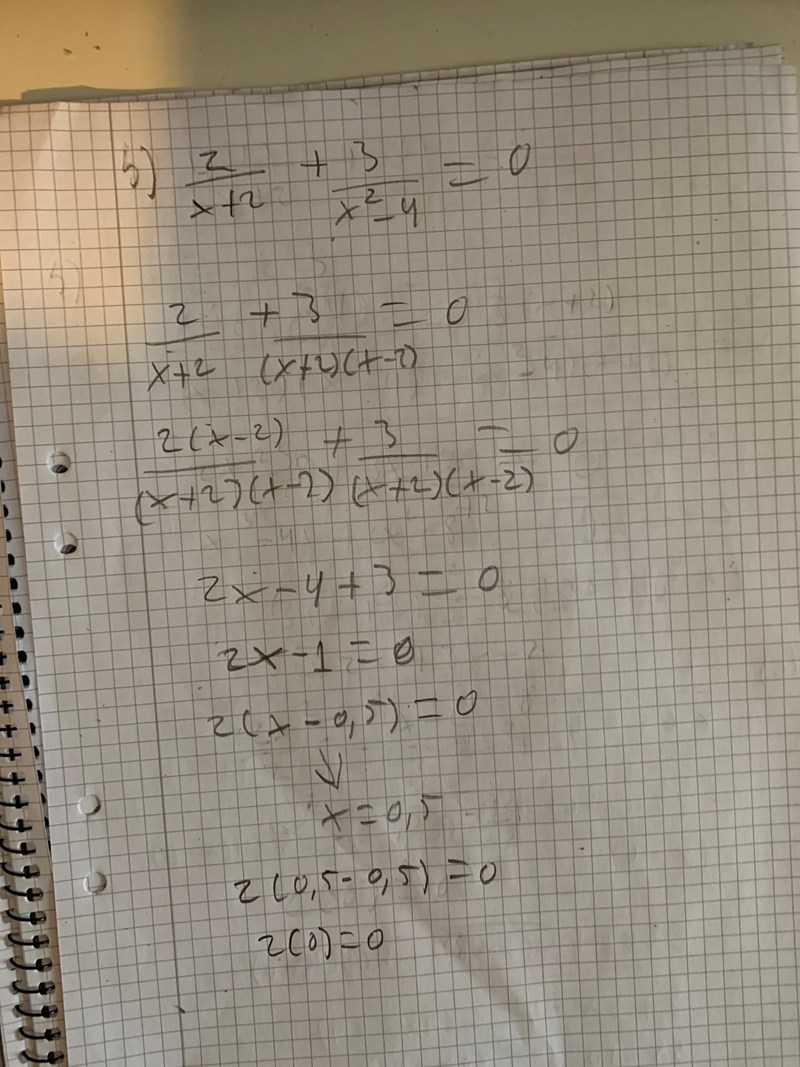 5) 2/(x+2) + 3/(x²-4) = 0
2/(x+2) + 3/((x+2)(x-2)) = 0
2(x-2)/((x+2)(x-2)) + 3/((x+2)(x-2)) = 0
2x-4+3=0
2x-1=0
2(x-0,5)=0
↓
x=0,5
2(0,5-0,5)=0
2(0)=0